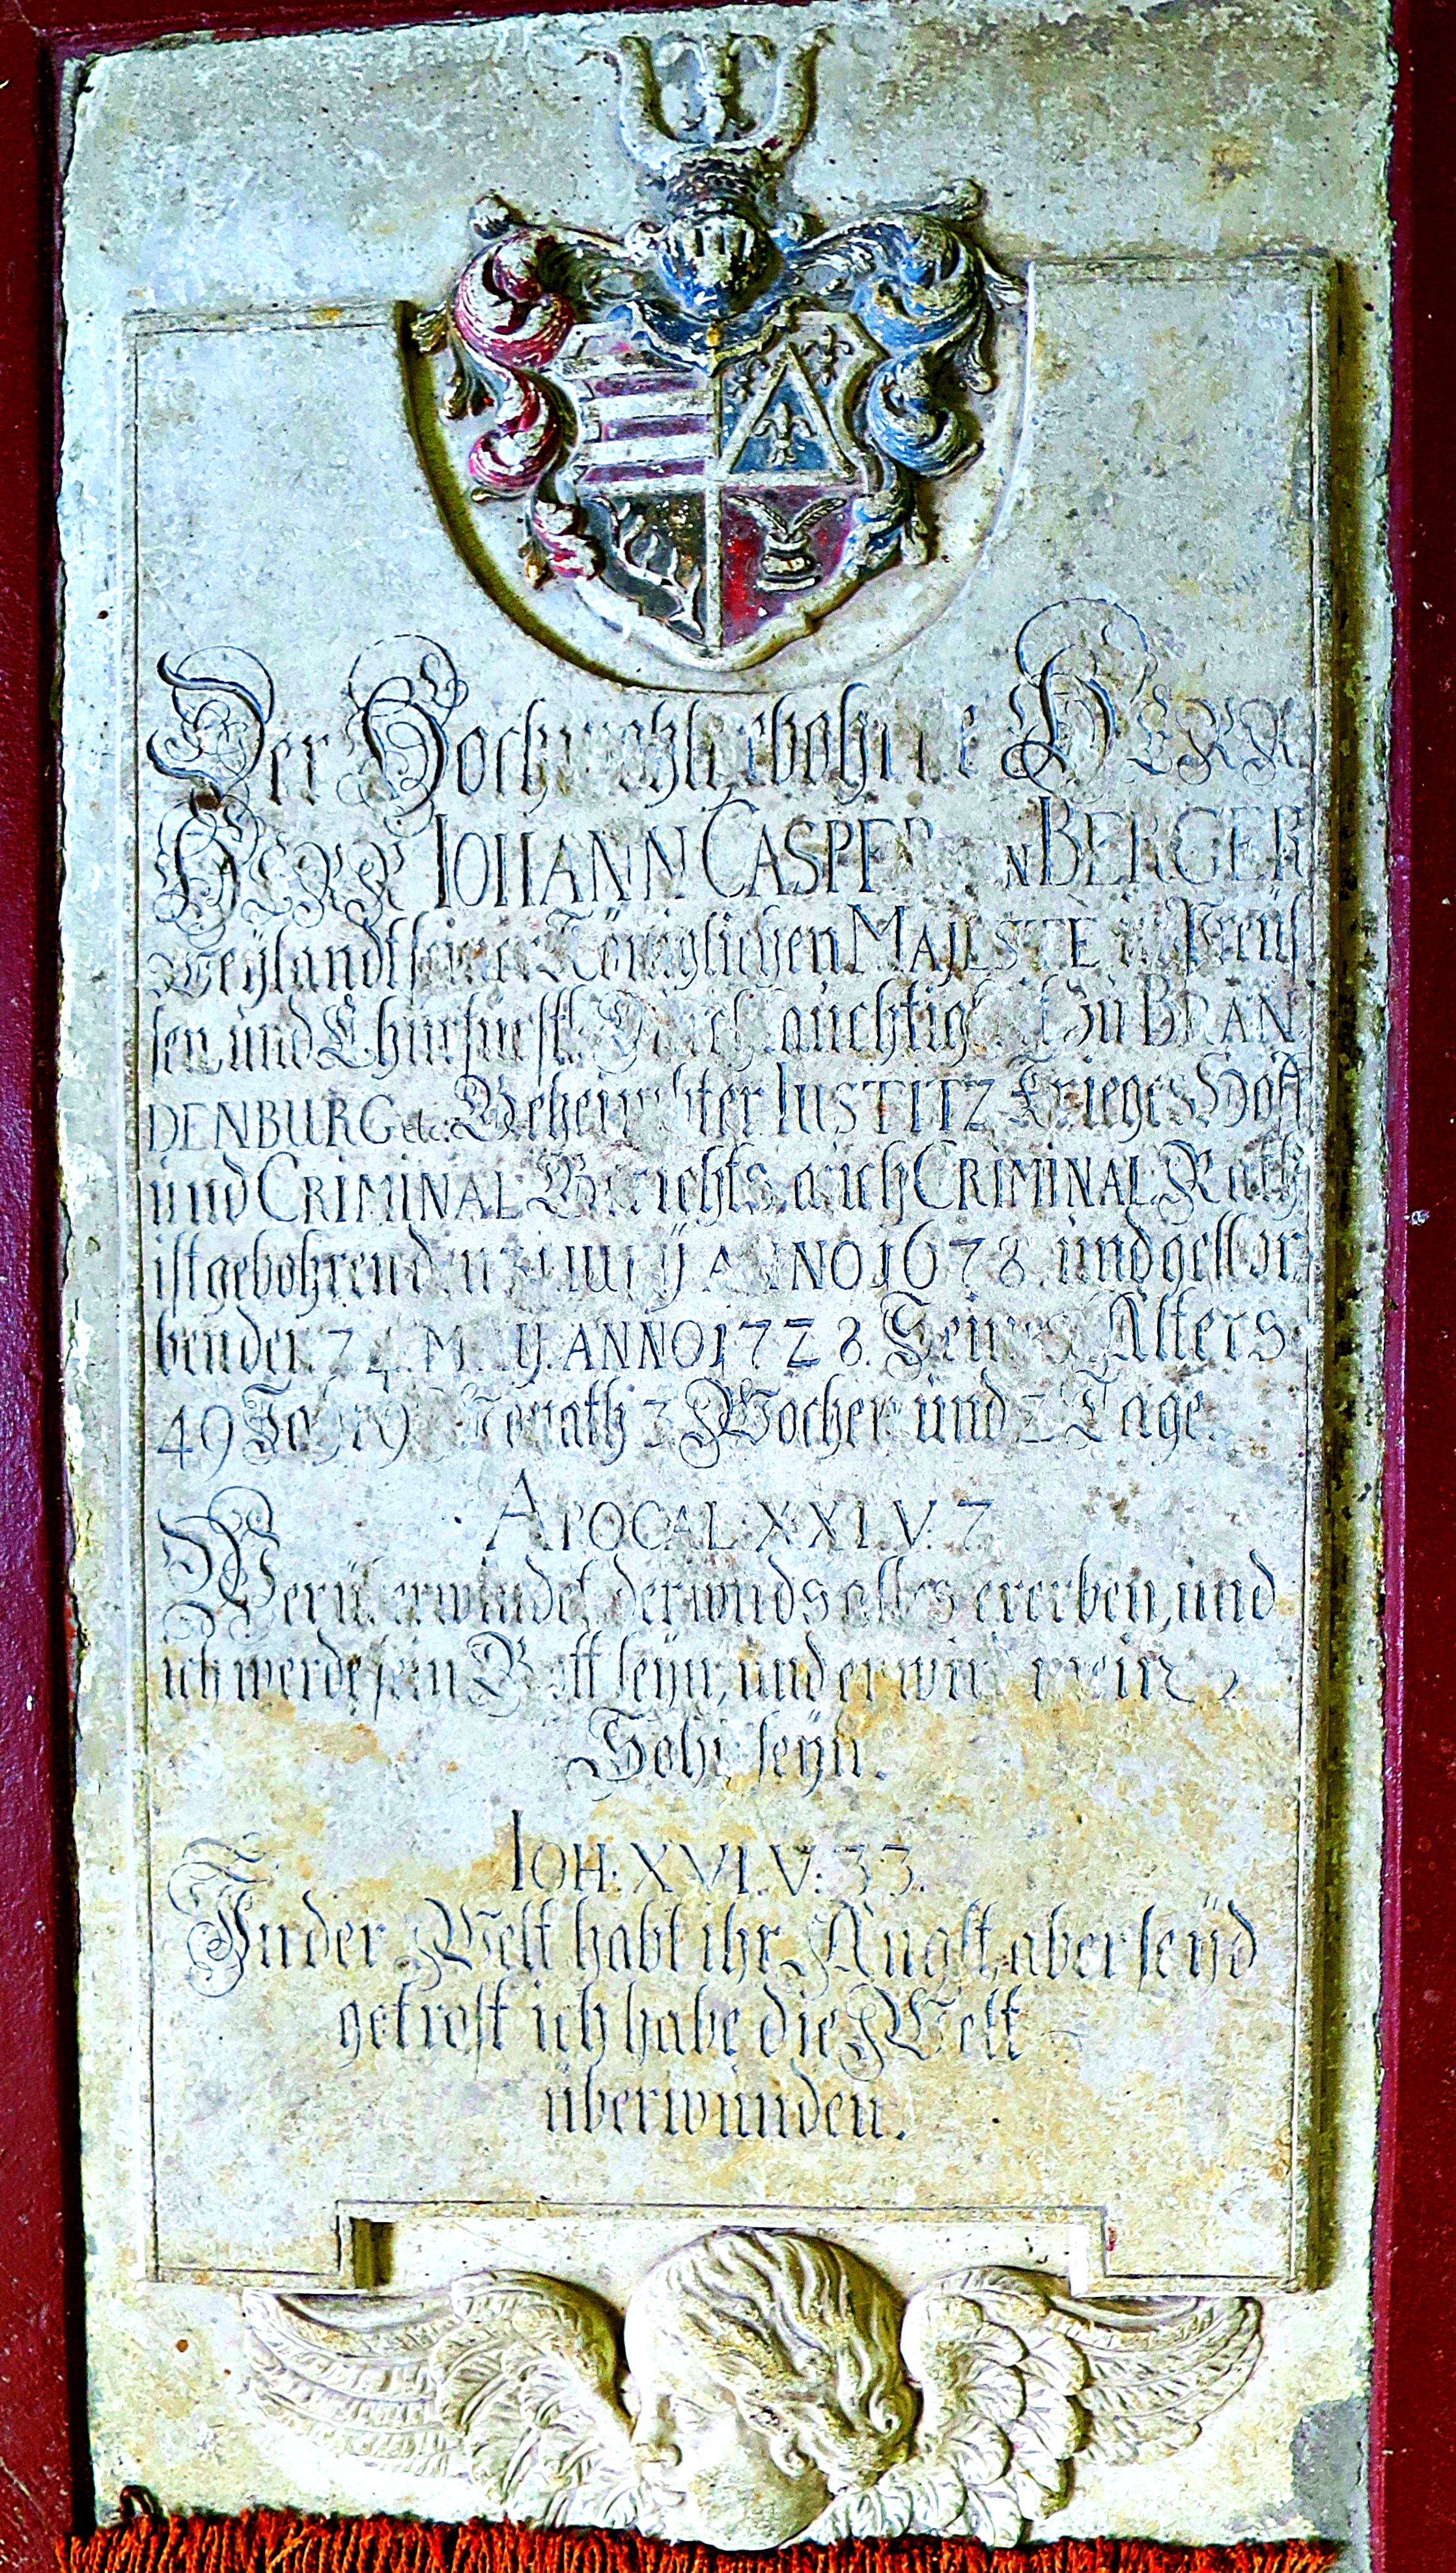 Der Hochwohlgebohrne HERR
HERR IOHANN CASPER BERGER
Weÿlandt seiner Königlichen MAJESTE in Preüs
sen, und Churfürstl. Zü BRAN
DENBURG etc. Geheimbter IUSTITZ Krieges Hoff
und CRIMINAL Gerichts, auch CRIMINAL Rath
ist gebohren den ANNO 1678. und gestor
ben den 24. MAY. ANNO 1728. Seines Alters
49 Jahr 9 3 Wochen und 2 Tage.
APOCAL: XXI. V. 7
Wer überwindet, der wirds alles ererben, und
ich werde sein Gott seÿn, und er wird mein
Sohn seÿn.
IOH: XVI. V. 33.
In der Welt habt ihr Angst, aber seÿd
getrost ich habe die Welt
überwunden.